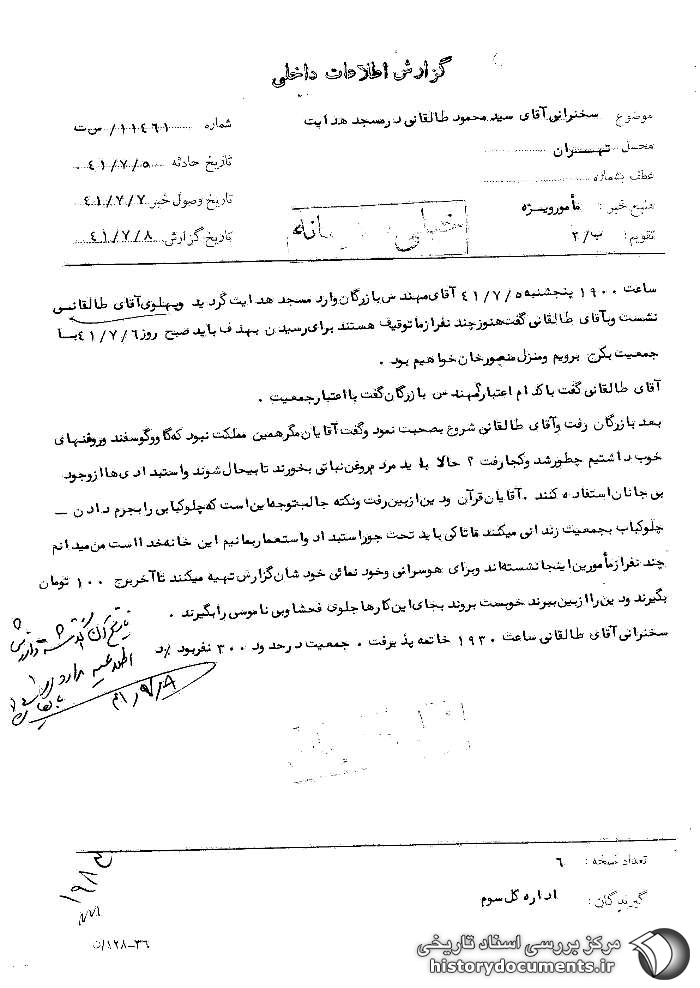 گزارش اطلاعات داخلی
موضوع سخنرانی آقای سید محمود طالقانی در مسجد هدایت
شماره ۱۱۴۶۱/س ت
محل تهران
تاریخ حادثه ۴۱/۷/۵
عطف بشماره
تاریخ وصول خبر ۴۱/۷/۷
منبع خبر : مأمور ویژه
تاریخ گزارش ۴۱/۷/۸
تقویم : ب/۲
خیلی محرمانه
ساعت ۱۹۰۰ پنجشنبه ۴۱/۷/۵ آقای مهندس بازرگان وارد مسجد هدایت گردید و پهلوی آقای طالقانی
نشست و بآقای طالقانی گفت هنوز چند نفر از ما توقیف هستند برای رسیدن بهدف باید صبح روز ۴۱/۷/۶ با
جمعیت بکرج برویم و منزل منصور خان خواهیم بود .
آقای طالقانی گفت با کدام اعتبار؟ مهندس بازرگان گفت با اعتبار جمعیت .
بعد بازرگان رفت و آقای طالقانی شروع بصحبت نمود و گفت آقایان مگر همین مملکت نبود که گاو و گوسفند و روغنهای
خوب داشتیم چطور شد و کجا رفت ؟ حالا باید مردم روغن نباتی بخورند تا بیحال شوند و استبدادی ها از وجود
بی جانان استفاده کنند . آقایان قرآن و دین از بین رفت و نکته جالب توجه این است که چلوکبابی را بجرم دادن —
چلوکباب بجمعیت زندانی میکنند تا کی باید تحت جور استبداد و استعمار بمانیم این خانه خدا است من میدانم
چند نفر از مأمورین اینجا نشسته اند و برای هوسرانی و خود نمائی خودشان گزارش تهیه میکنند تا آخر برج ۱۰۰ تومان
بگیرند و دین را از بین ببرند خوبست بروند بجای این کارها جلوی فحشا و بی ناموسی را بگیرند .
سخنرانی آقای طالقانی ساعت ۱۹۳۰ خاتمه پذیرفت . جمعیت در حدود ۳۰۰ نفر بود
۴۱/۹/۸
تعداد نسخه : ۶
گیرندگان : اداره کل سوم
۱۹۸۳
۳۶-۱۲۸/ن
مرکز بررسی اسناد تاریخی
historydocuments.ir